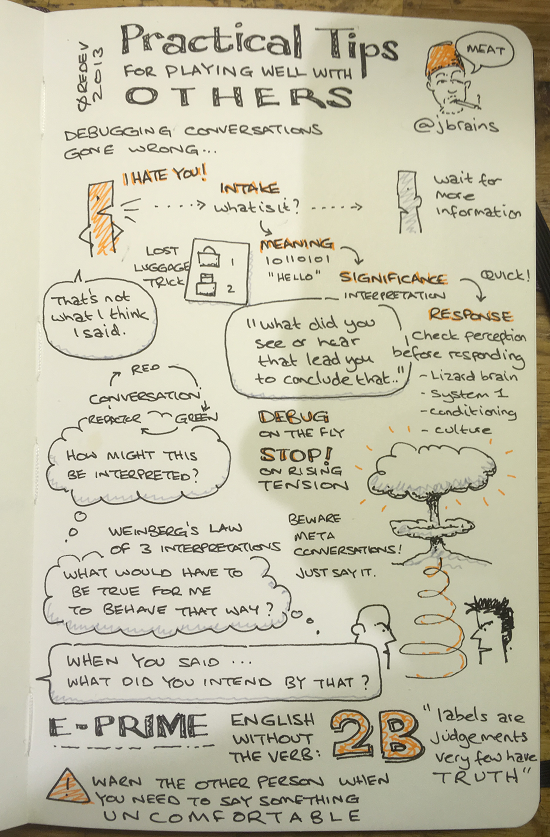 Øredev 2013
Practical Tips
FOR PLAYING WELL WITH
OTHERS
MEAT
@jbrains
DEBUGGING CONVERSATIONS
GONE WRONG...
I HATE YOU!
INTAKE
what is it?
wait for
more
information
LOST
LUGGAGE
TRICK
1
2
MEANING
10110101
"HELLO"
SIGNIFICANCE
INTERPRETATION
Quick!
RESPONSE
Check perception
before responding
- Lizard brain
- System 1
- conditioning
- culture
That's not
what I think
I said.
"What did you
see or hear
that lead you
to conclude that.."
RED
CONVERSATION
REFACTOR
GREEN
HOW MIGHT THIS
BE INTERPRETED?
DEBUG
ON THE FLY
STOP!
ON RISING
TENSION
WEINBERG'S LAW
OF 3 INTERPRETATIONS
BEWARE
META
CONVERSATIONS!
JUST SAY IT.
WHAT WOULD HAVE TO
BE TRUE FOR ME
TO BEHAVE THAT WAY?
WHEN YOU SAID ...
WHAT DID YOU INTEND BY THAT?
E-PRIME
ENGLISH
WITHOUT
THE VERB:
2B
"labels are
judgements
very few have
TRUTH"
!
WARN THE OTHER PERSON WHEN
YOU NEED TO SAY SOMETHING
UNCOMFORTABLE